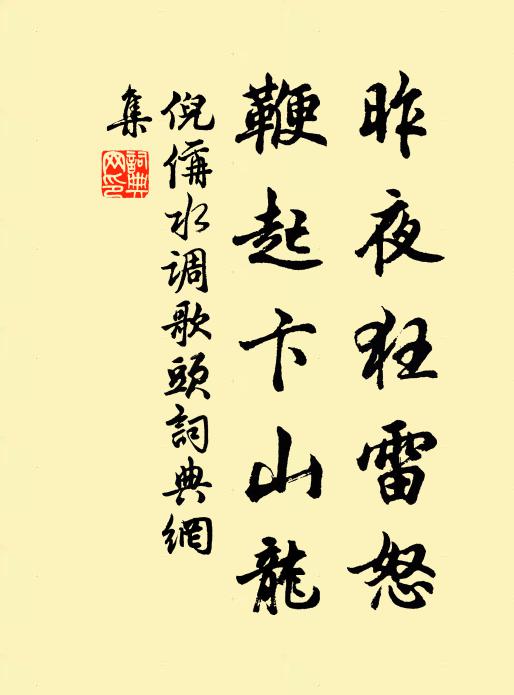 昨夜狂雷怒
鞭起卞山龍
倪偁水调歌頭詞典網
集
詞典網印